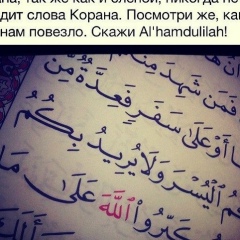 так же как и слепой, никогда не
дит слова Корана. Посмотри же, как
нам повезло. Скажи Al'hamdulilah!
فَمَن شَهِدَ مِن
أَوْ عَلَىٰ سَفَرٍ فَعِدَّةٌ مِّنْ
ٱلْيُسْرَ وَلَا يُرِيدُ بِكُمُ
كَبِّرُوا۟ ٱللَّهَ عَلَىٰ مَا
سَأَلَكَ